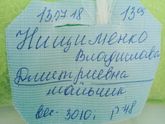 13.07.18 13 9
Нищименко
Владислава
Дмитриевна
мальчик
вес-3010, р 48